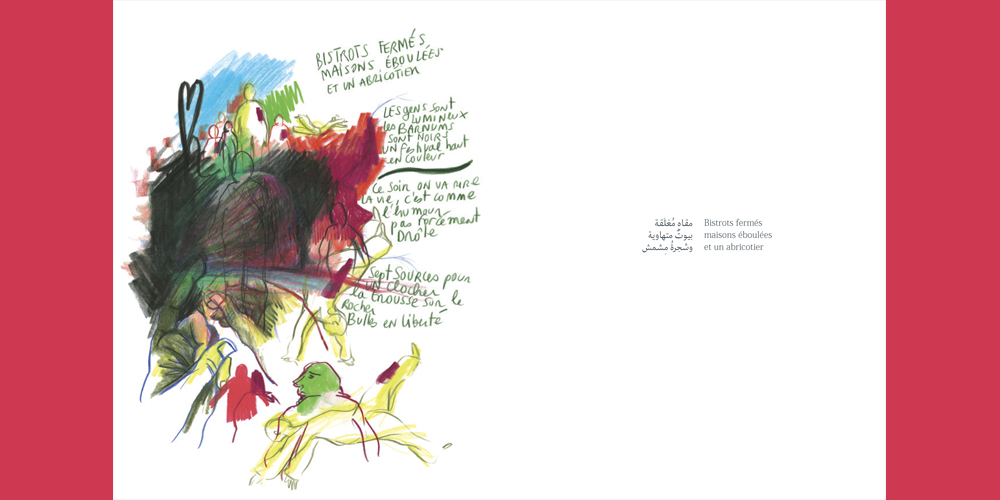 BISTROTS FERMÉS
MAISONS ÉBOULÉES
ET UN ABRICOTIEN
LES gens sont
LUMINEUX
les BARNUMS
SONT NOIR-
UN festival haut
en couleur
Ce soir on va rire
la vie, c'est comme
l'humour
pas forcément
Drôle
Sept SOURCES pour
UN clocher
la trousse sur le
Rocher
Bulles en liberté
مقاهٍ مُغلقَة
بيوتٌ متهاوية
وشجرةُ مِشمشْ
Bistrots fermés
maisons éboulées
et un abricotier